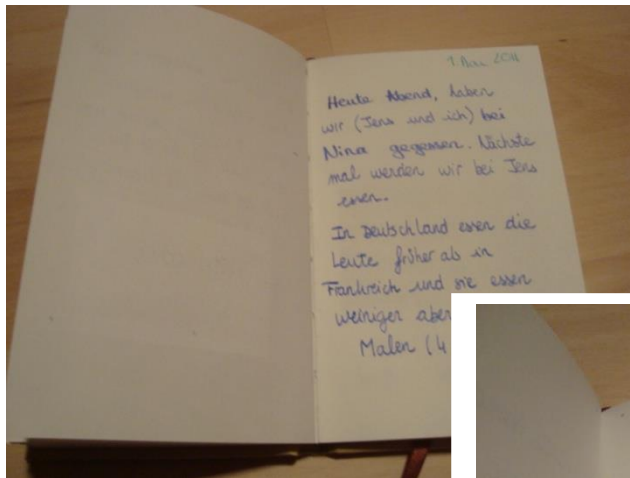 1. Mai 2011
Heute Abend, haben
wir (Jens und ich) bei
Nina gegessen. Nächste
mal werden wir bei Jens
essen.
In Deutschland essen die
Leute früher als in
Frankreich und sie essen
weiniger aber
Malen (4